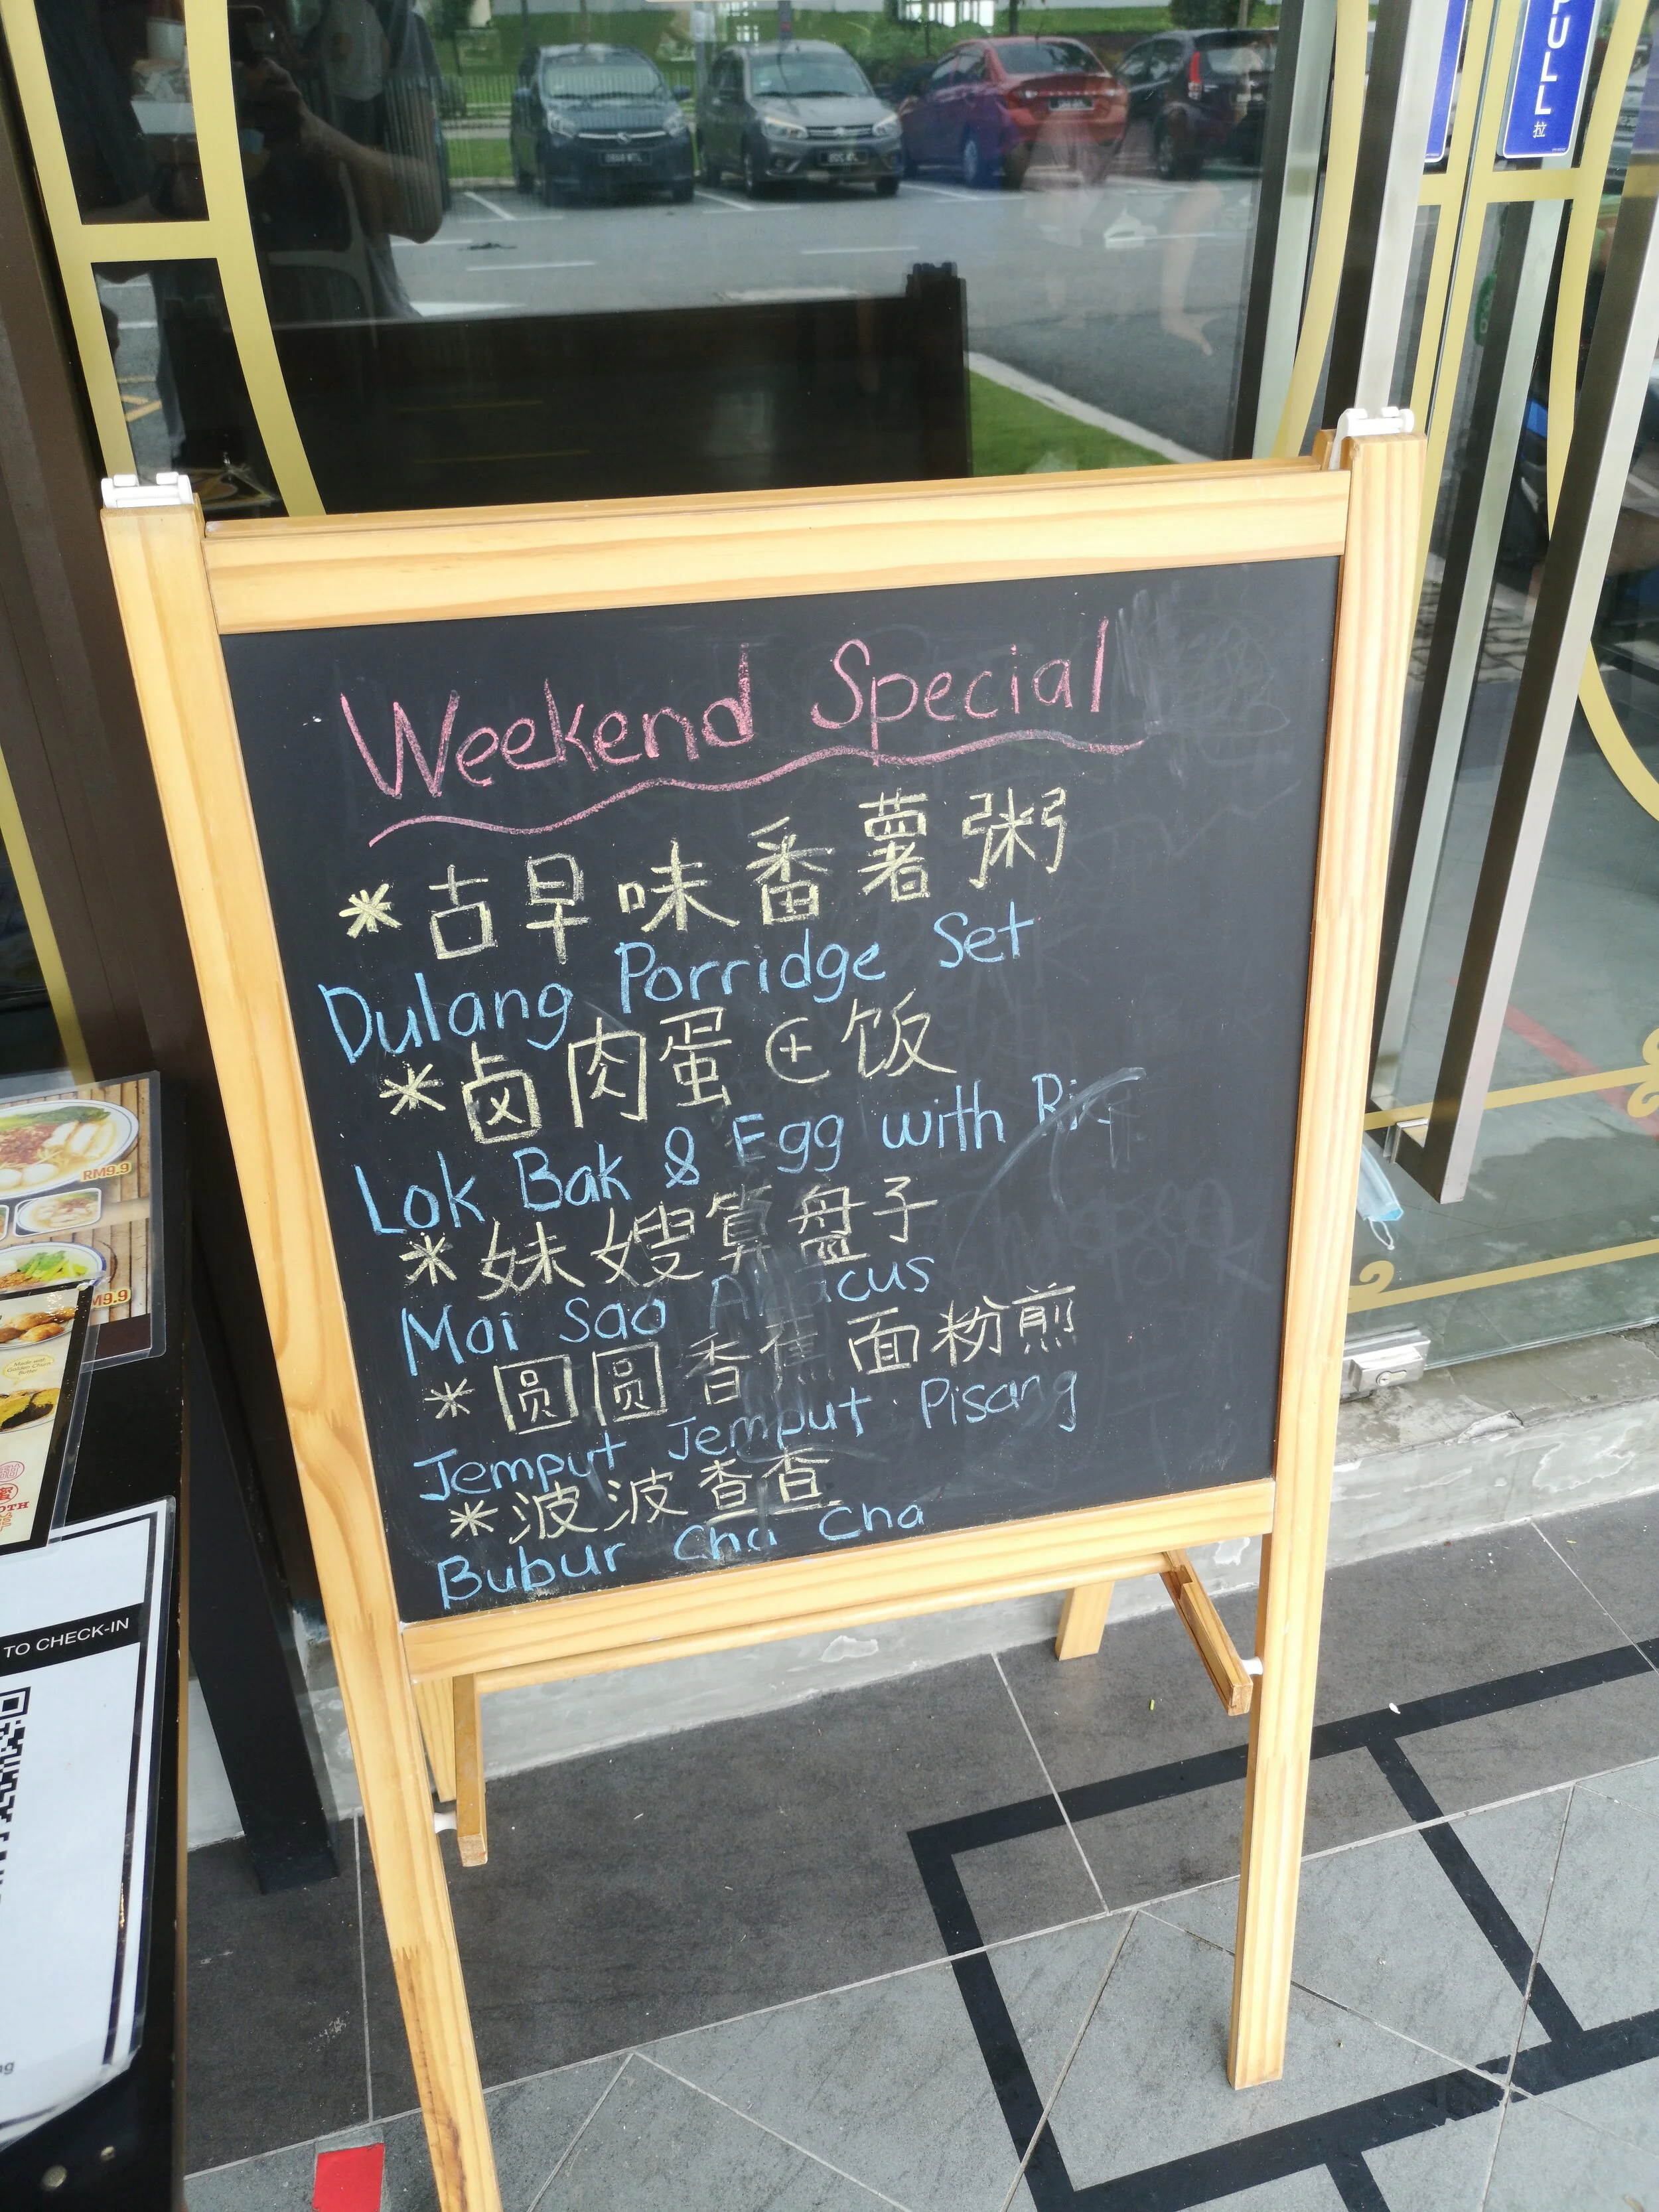 PULL
拉
Weekend Special
*古早味番薯粥
Dulang Porridge Set
*卤肉蛋⊕饭
Lok Bak & Egg with
*妹嫂算盘子
Moi Sao Abacus
*圆圆香蕉面粉煎
Jemput Jemput Pisang
*波波查查
Bubur Cha Cha
RM9.9
M9.9
TO CHECK-IN